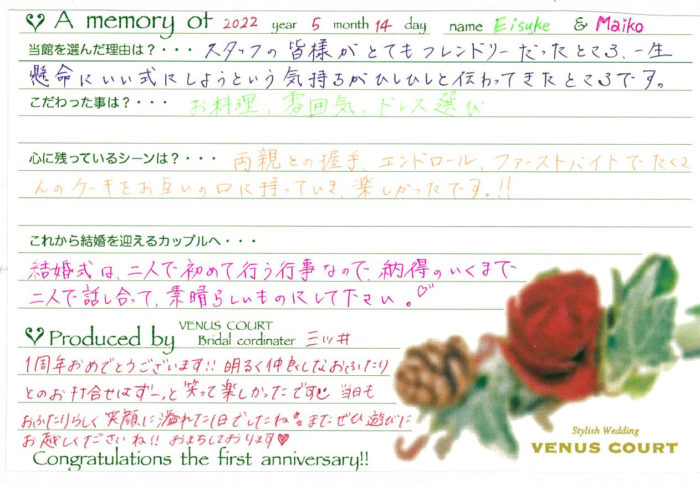 A memory of 2022 year 5 month 14 day name Eisuke & Maiko
当館を選んだ理由は？・・・ スタッフの皆様がとてもフレンドリーだったところ、一生
懸命にいい式にしようという気持ちがひしひしと伝わってきたところです。
こだわった事は？・・・ お料理、雰囲気、ドレス選び
心に残っているシーンは？・・・ 両親との握手、エンドロール、ファーストバイトでたくさ
んのケーキをお互いの口に持っていき、楽しかったです。!!
これから結婚を迎えるカップルへ・・・
結婚式は、二人で初めて行う行事なので、納得のいくまで
二人で話し合って、素晴らしいものにして下さい。♡
Produced by VENUS COURT Bridal cordinater 三ツ井
1周年おめでとうございます!! 明るく仲良しなおふたり
とのお打合せはずーっと笑って楽しかったです 当日も
おふたりらしく笑顔に溢れた1日でしたね またぜひ遊びに
お越しくださいね!! おまちしております♥
Congratulations the first anniversary!!
Stylish Wedding
VENUS COURT